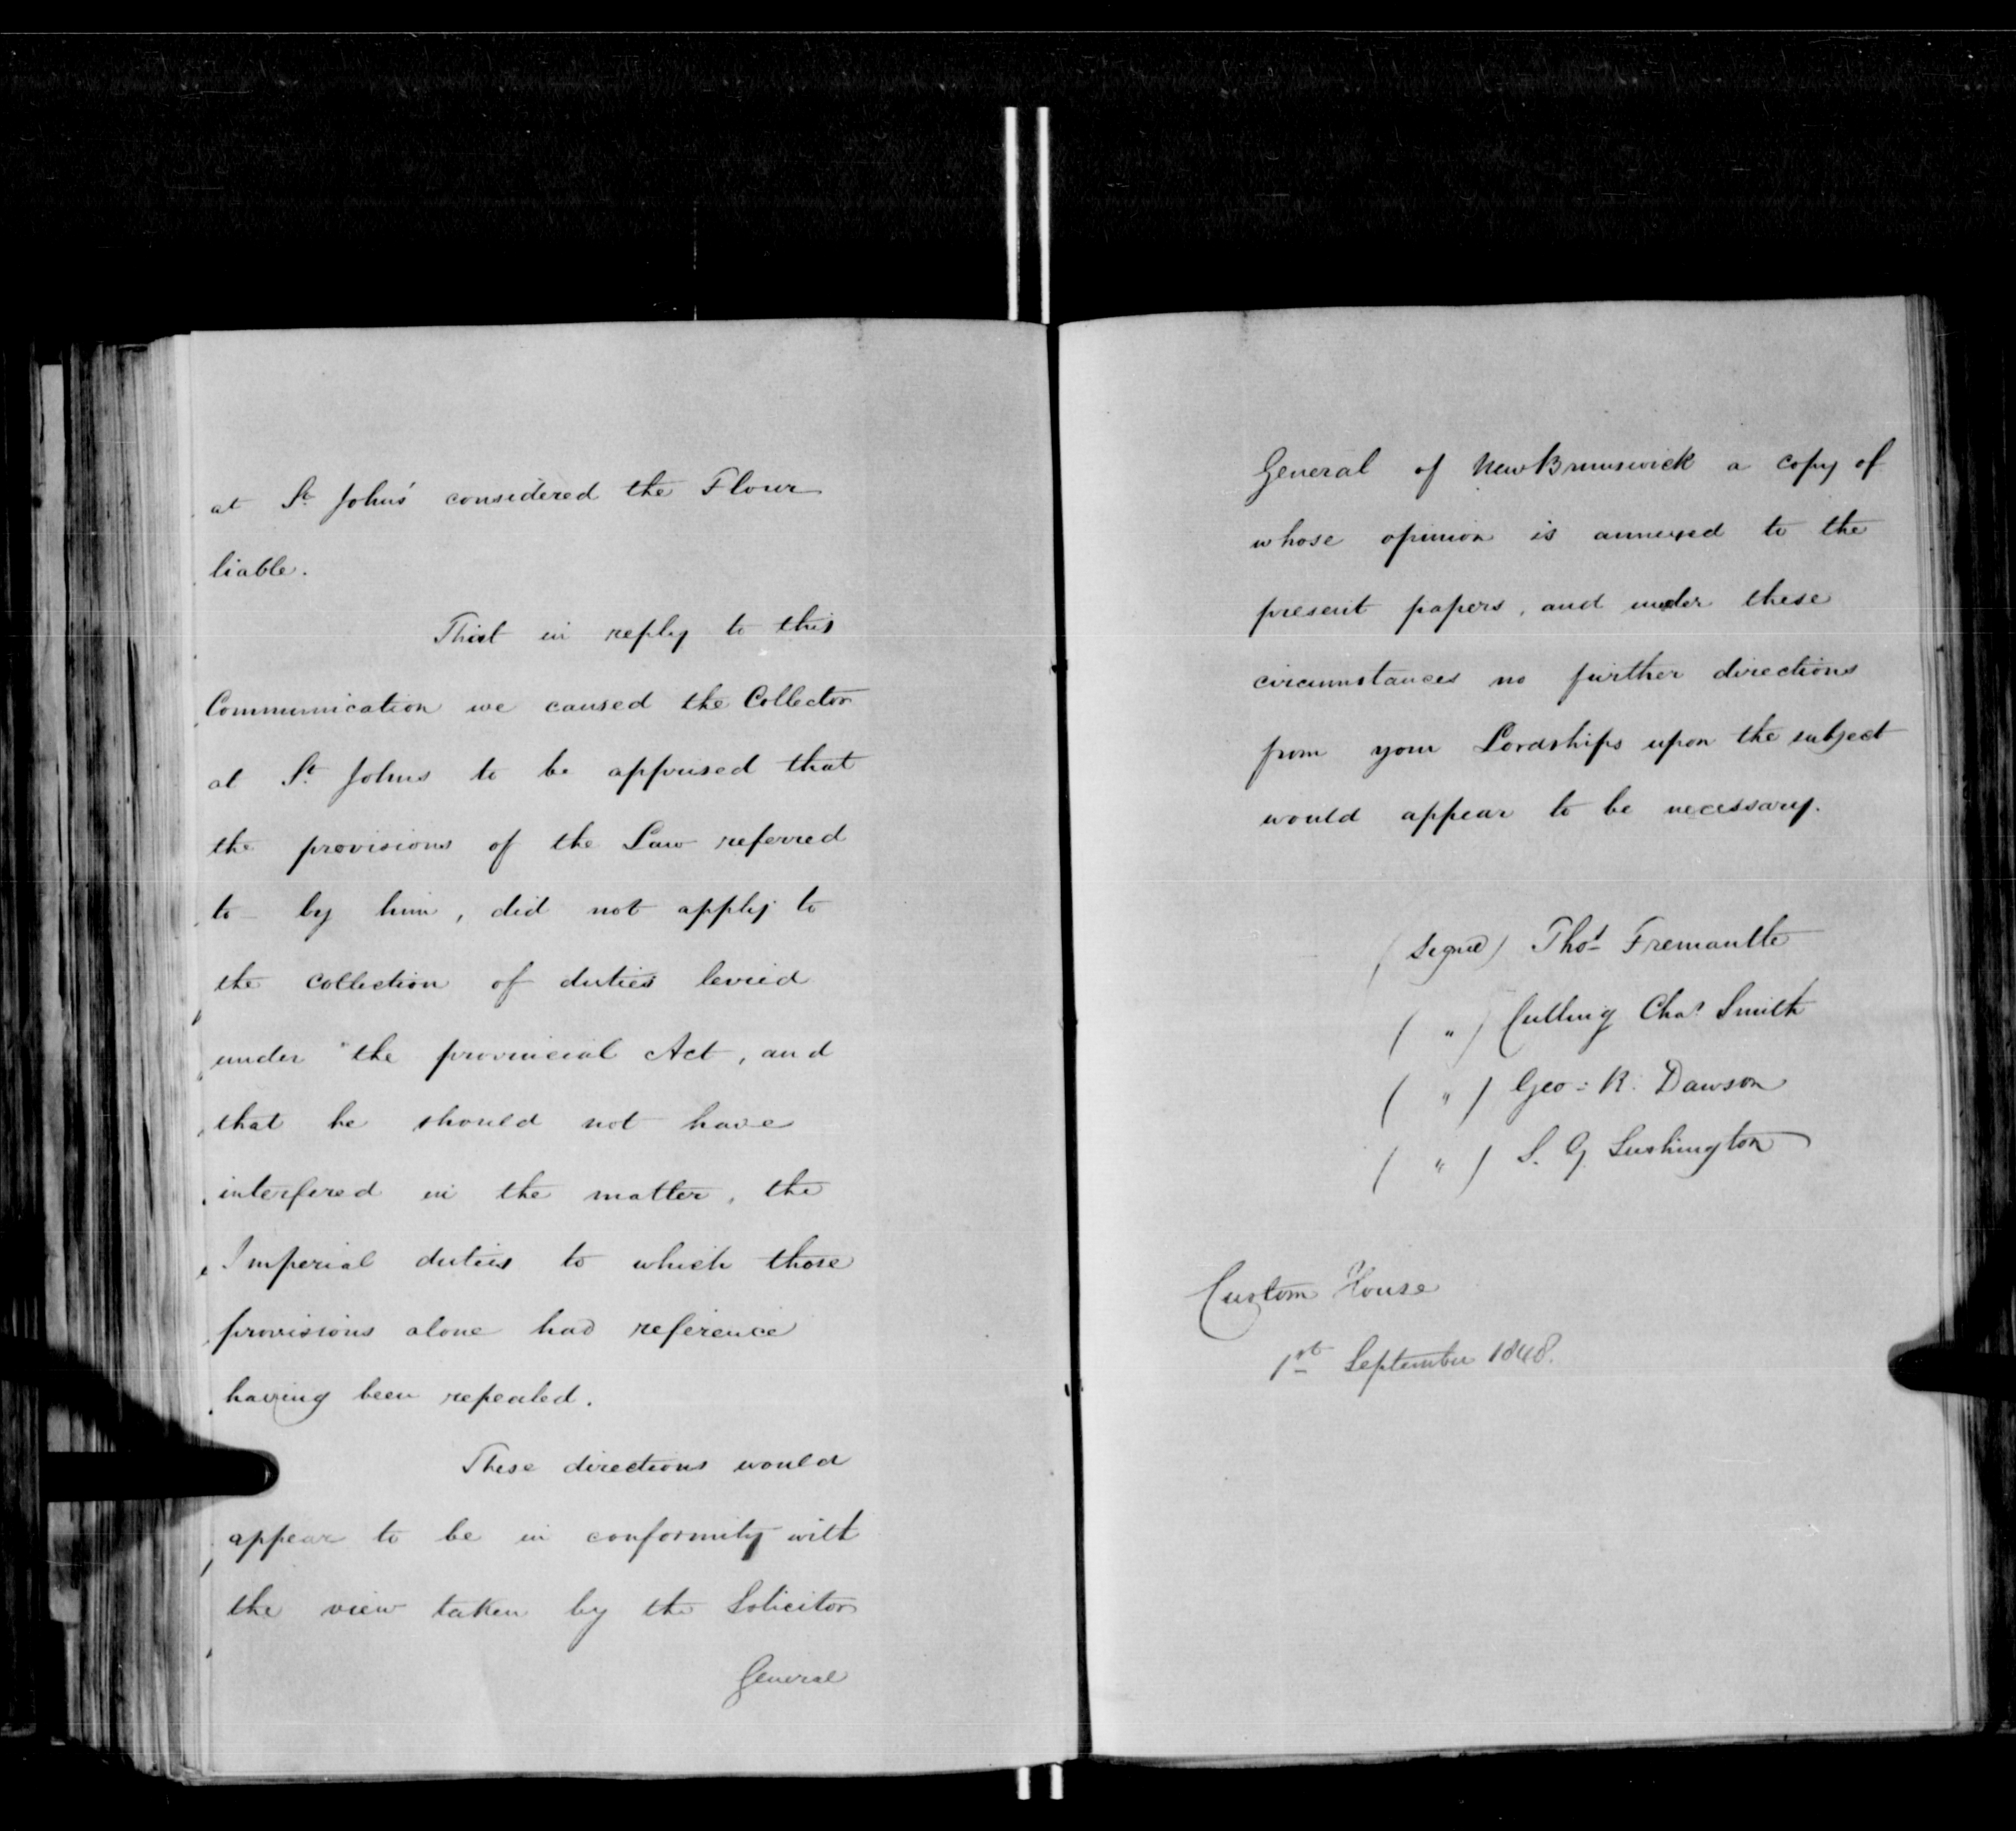 at St. Johns' considered the Flour
liable.
That in reply to this
Communication we caused the Collector
at St. Johns to be apprised that
the provisions of the Law referred
to by him, did not apply to
the collection of duties levied
under the provincial Act, and
that he should not have
interfered in the matter, the
Imperial duties to which those
provisions alone had reference
having been repealed.
These directions would
appear to be in conformity with
the view taken by the Solicitor
General
General of New Brunswick a copy of
whose opinion is annexed to the
present papers, and under these
circumstances no further directions
from your Lordships upon the subject
would appear to be necessary.
(Signed) Thos Fremantle
( " ) Culling Chas Smith
( " ) Geo: R. Dawson
( " ) S. G. Lushington
Custom House
1st September 1848.